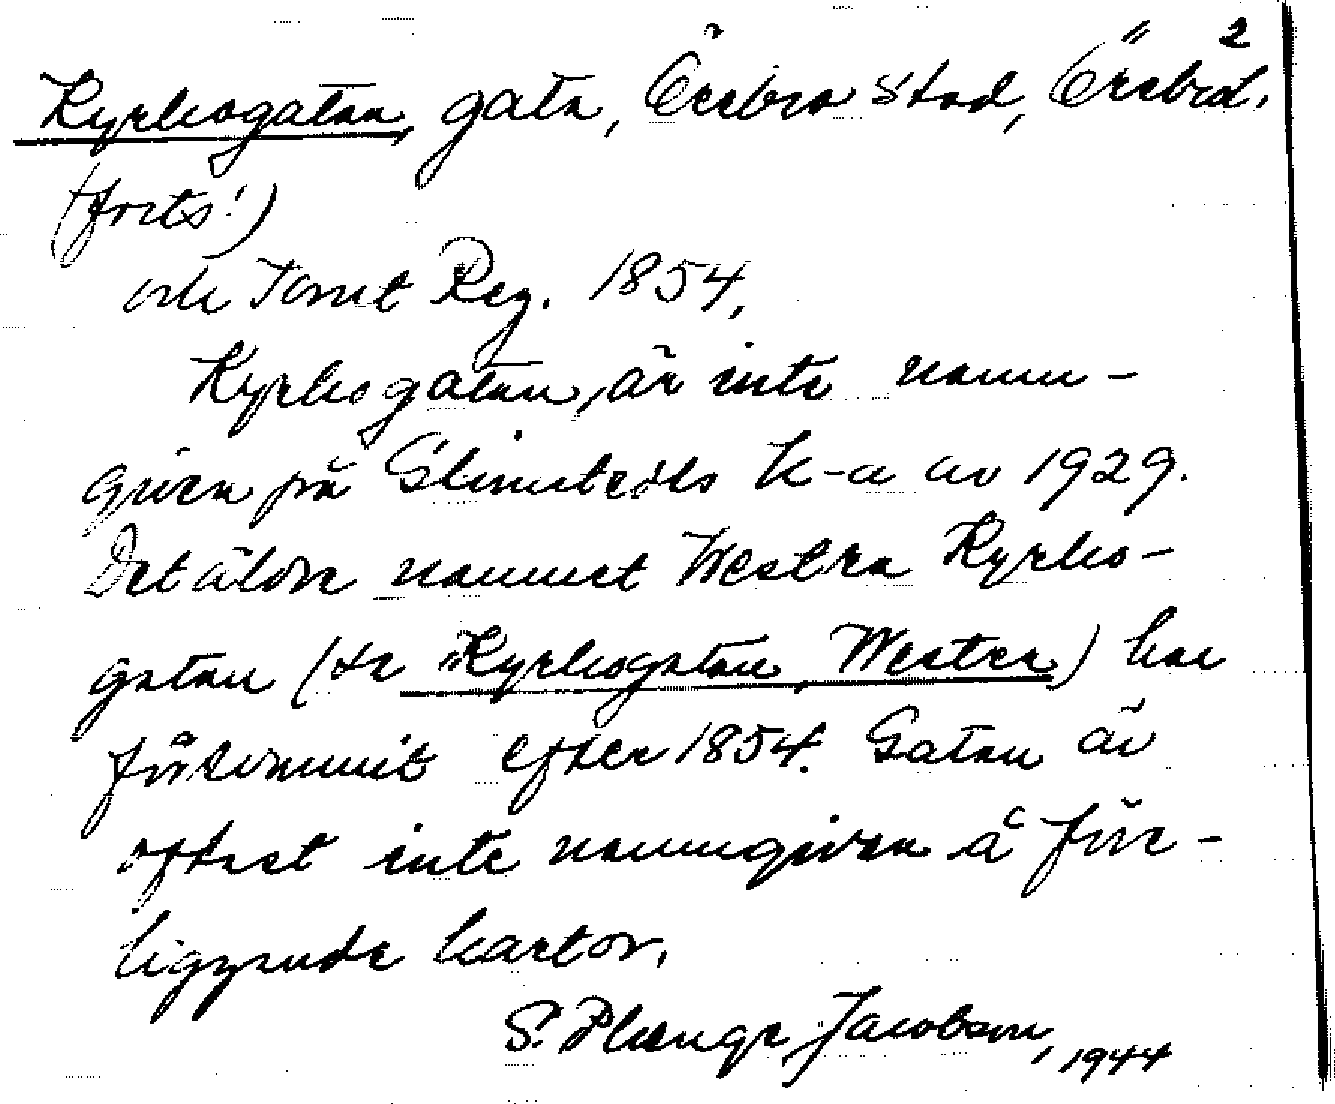 2
Kyrkogatan, gata, Örebro stad, Örebro l.
(forts!)
och Tomt Reg. 1854.
Kyrkogatan, är inte namn-
given på Glimstedts k-a av 1929.
Det äldre namnet Westra Kyrko-
gatan (se "Kyrkogatan, Westra) har
försvunnit efter 1854. Gatan är
oftast inte namngiven å före-
liggande kartor.
S. Plænge Jacobson, 1944